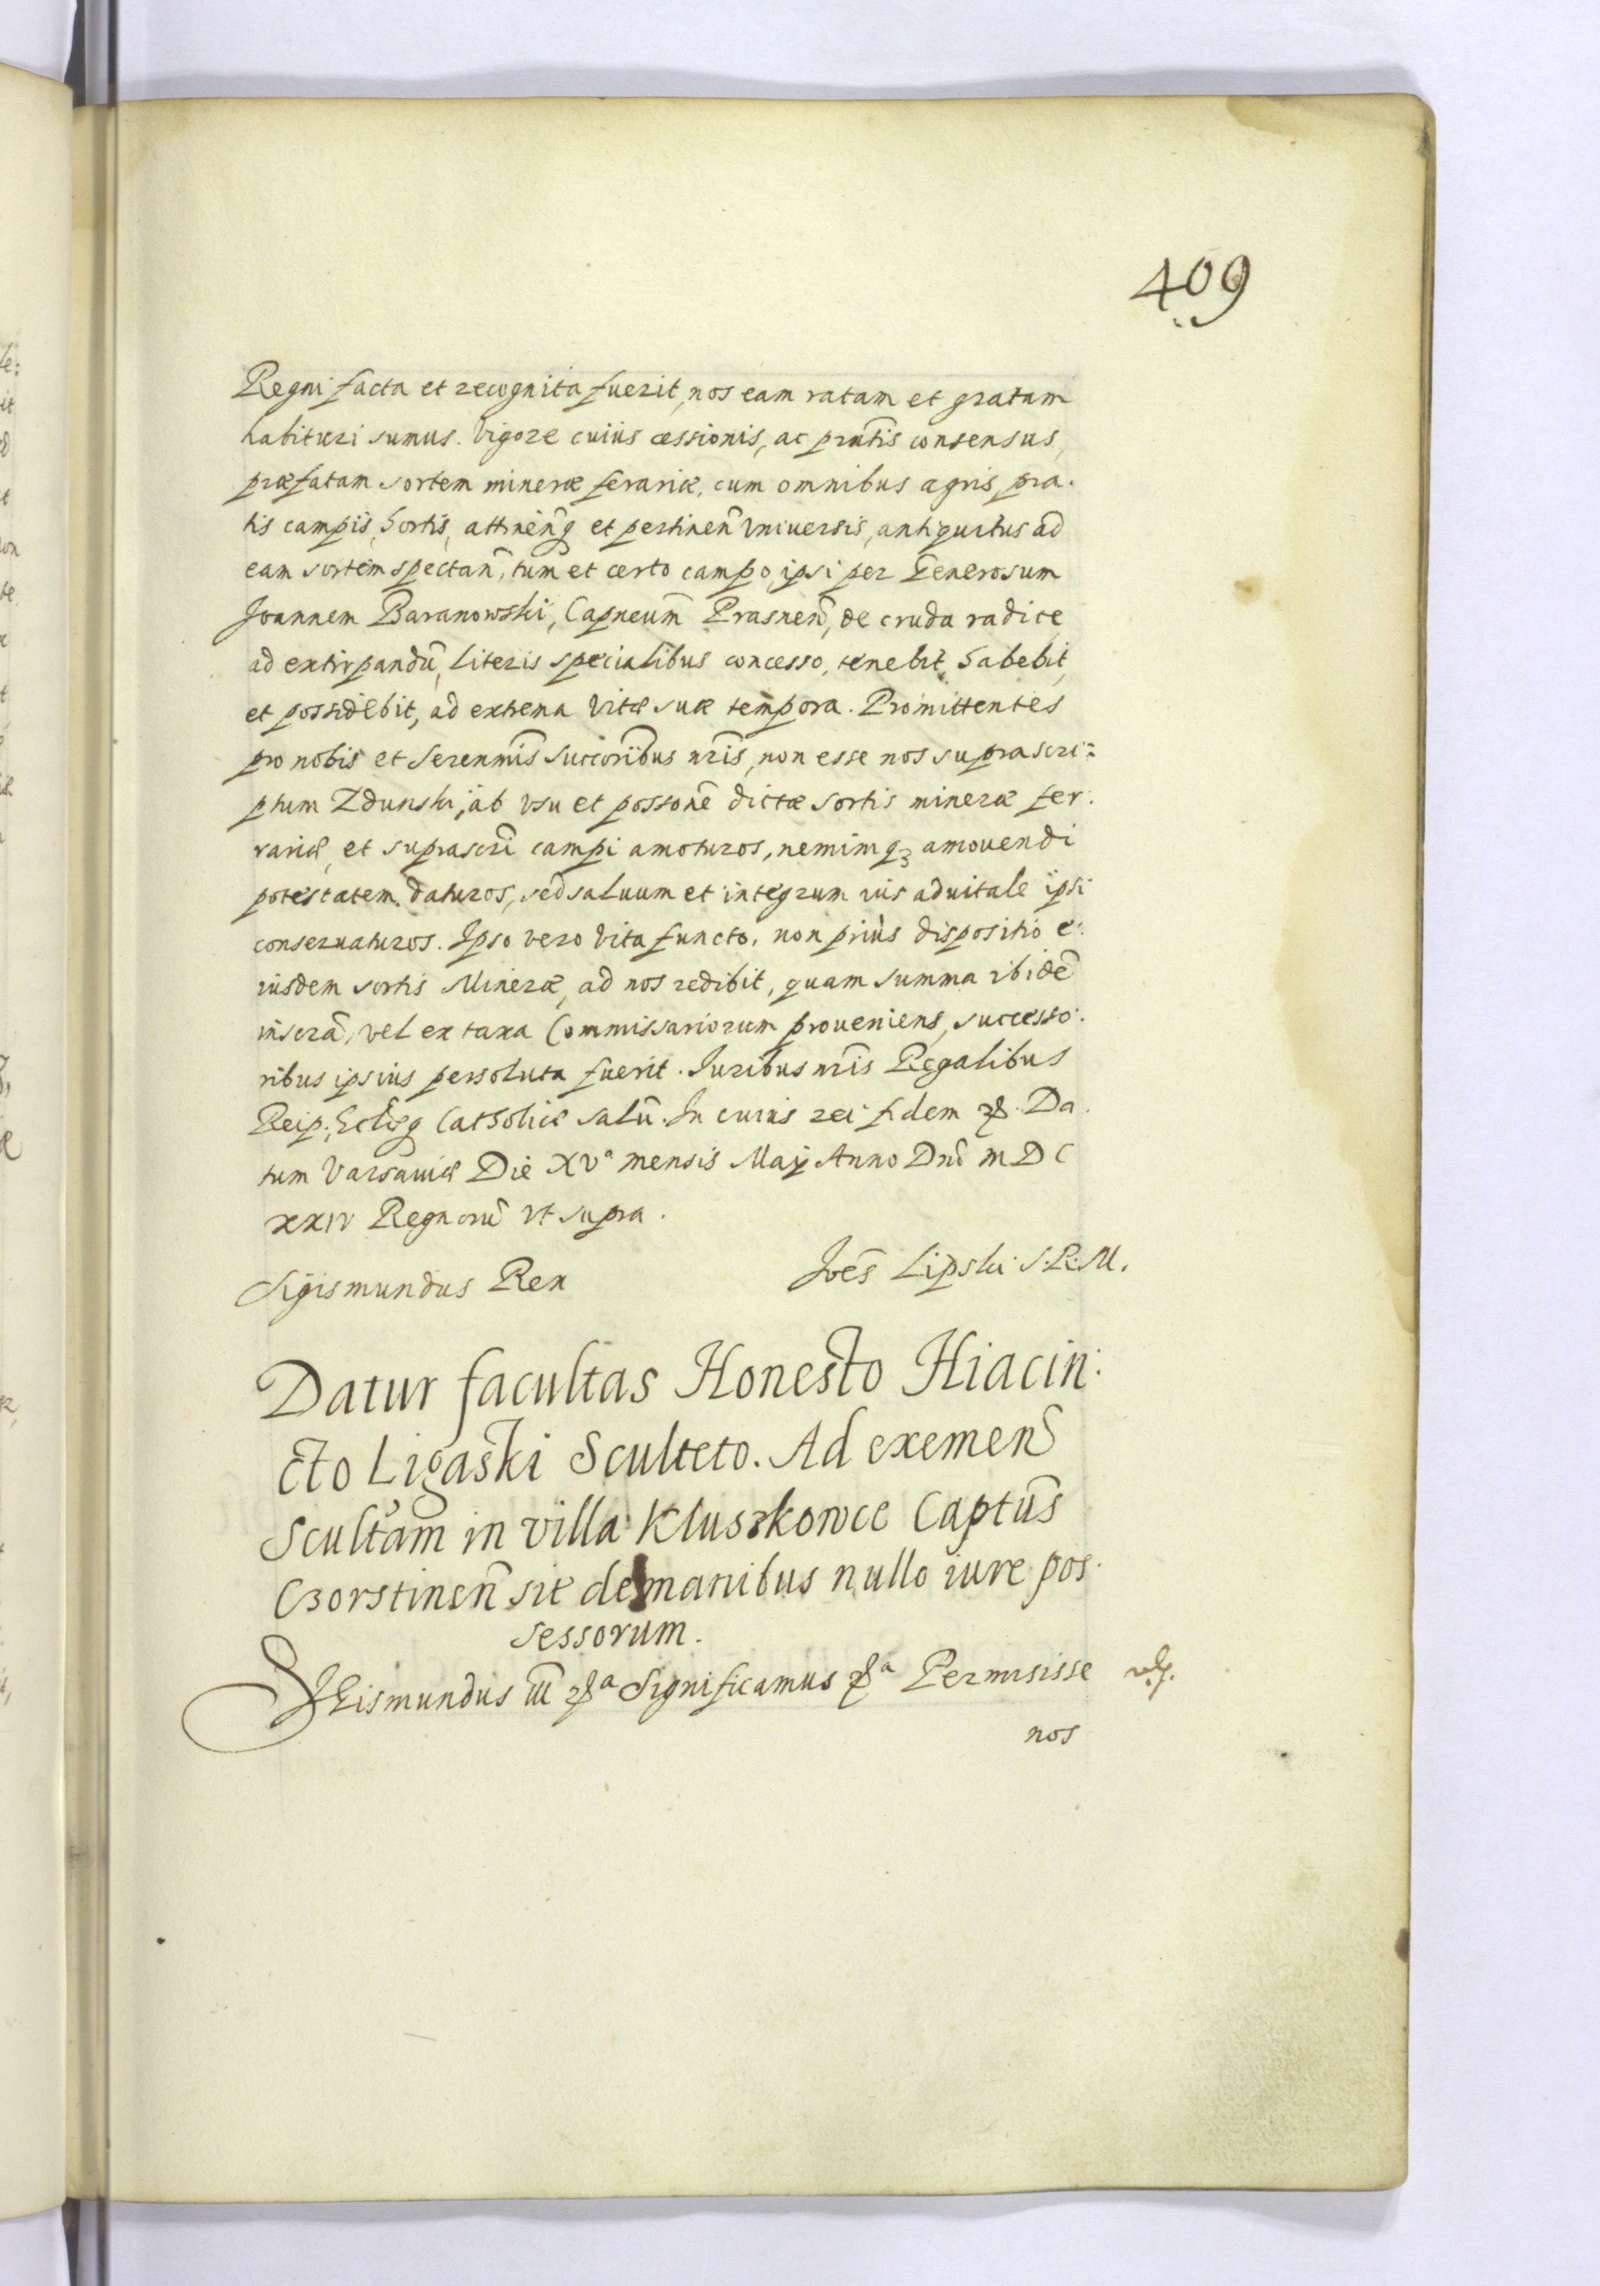 409
Regni facta et recognita fuerit, nos eam ratam et gratam
habituri sumus. Vigore cuius cessionis, ac pňtis consensus,
præfatam sortem mineræ ferariæ, cum omnibus agris, pra.
tis campis, hortis, attineñ et pertineñ vniuersis, antiquitus ad
eam sortem spectañ, tum et certo campo, ipsi per Generosum
Joannem Baranowski, Capneum̃ Prasneñ, de cruda radice
ad extirpandũ, literis specialibus concesso, tenebit, habebit,
et possidebit, ad extrema vitæ suæ tempora. Promittentes
pro nobis et Serenmis̃ Succoribus̃ nris̃, non esse nos suprascri:
ptum Zdunski, ab vsu et possonẽ dictæ sortis mineræ fer.
rariæ, et suprascrĩ campi amoturos, neminiqꝫ amouendi
potestatem daturos, sed saluum et integrum ius aduitale ipsi
conseruaturos. Ipso vero vita functo, non priùs dispositio e:
iusdem sortis Mineræ, ad nos redibit, quam summa ibidẽ
inscrã, vel ex taxa Commissariorum proueniens, successo.
ribus ipsius persoluta fuerit. Iuribus nris̃ Regalibus
Reip: Eccl̃æq Catholicæ salũ. In cuius rei fidem &. Da.
tum Varsauiæ Die XVª mensis Maij Anno Dnĩ M D C
XXIV Regnorũ vt supra.
Sigismundus Rex Joẽs Lipski S. R. M.
Datur facultas Honesto Hiacin:
cto Ligaski Sculteto. Ad exemeñ
Scultam̃ in villa Kluszkowce Captus̃
Czorstineñ sit de manibus nullo iure pos.
sessorum.
SIGismundus III &ª Significamus &ª Permisisse
nos